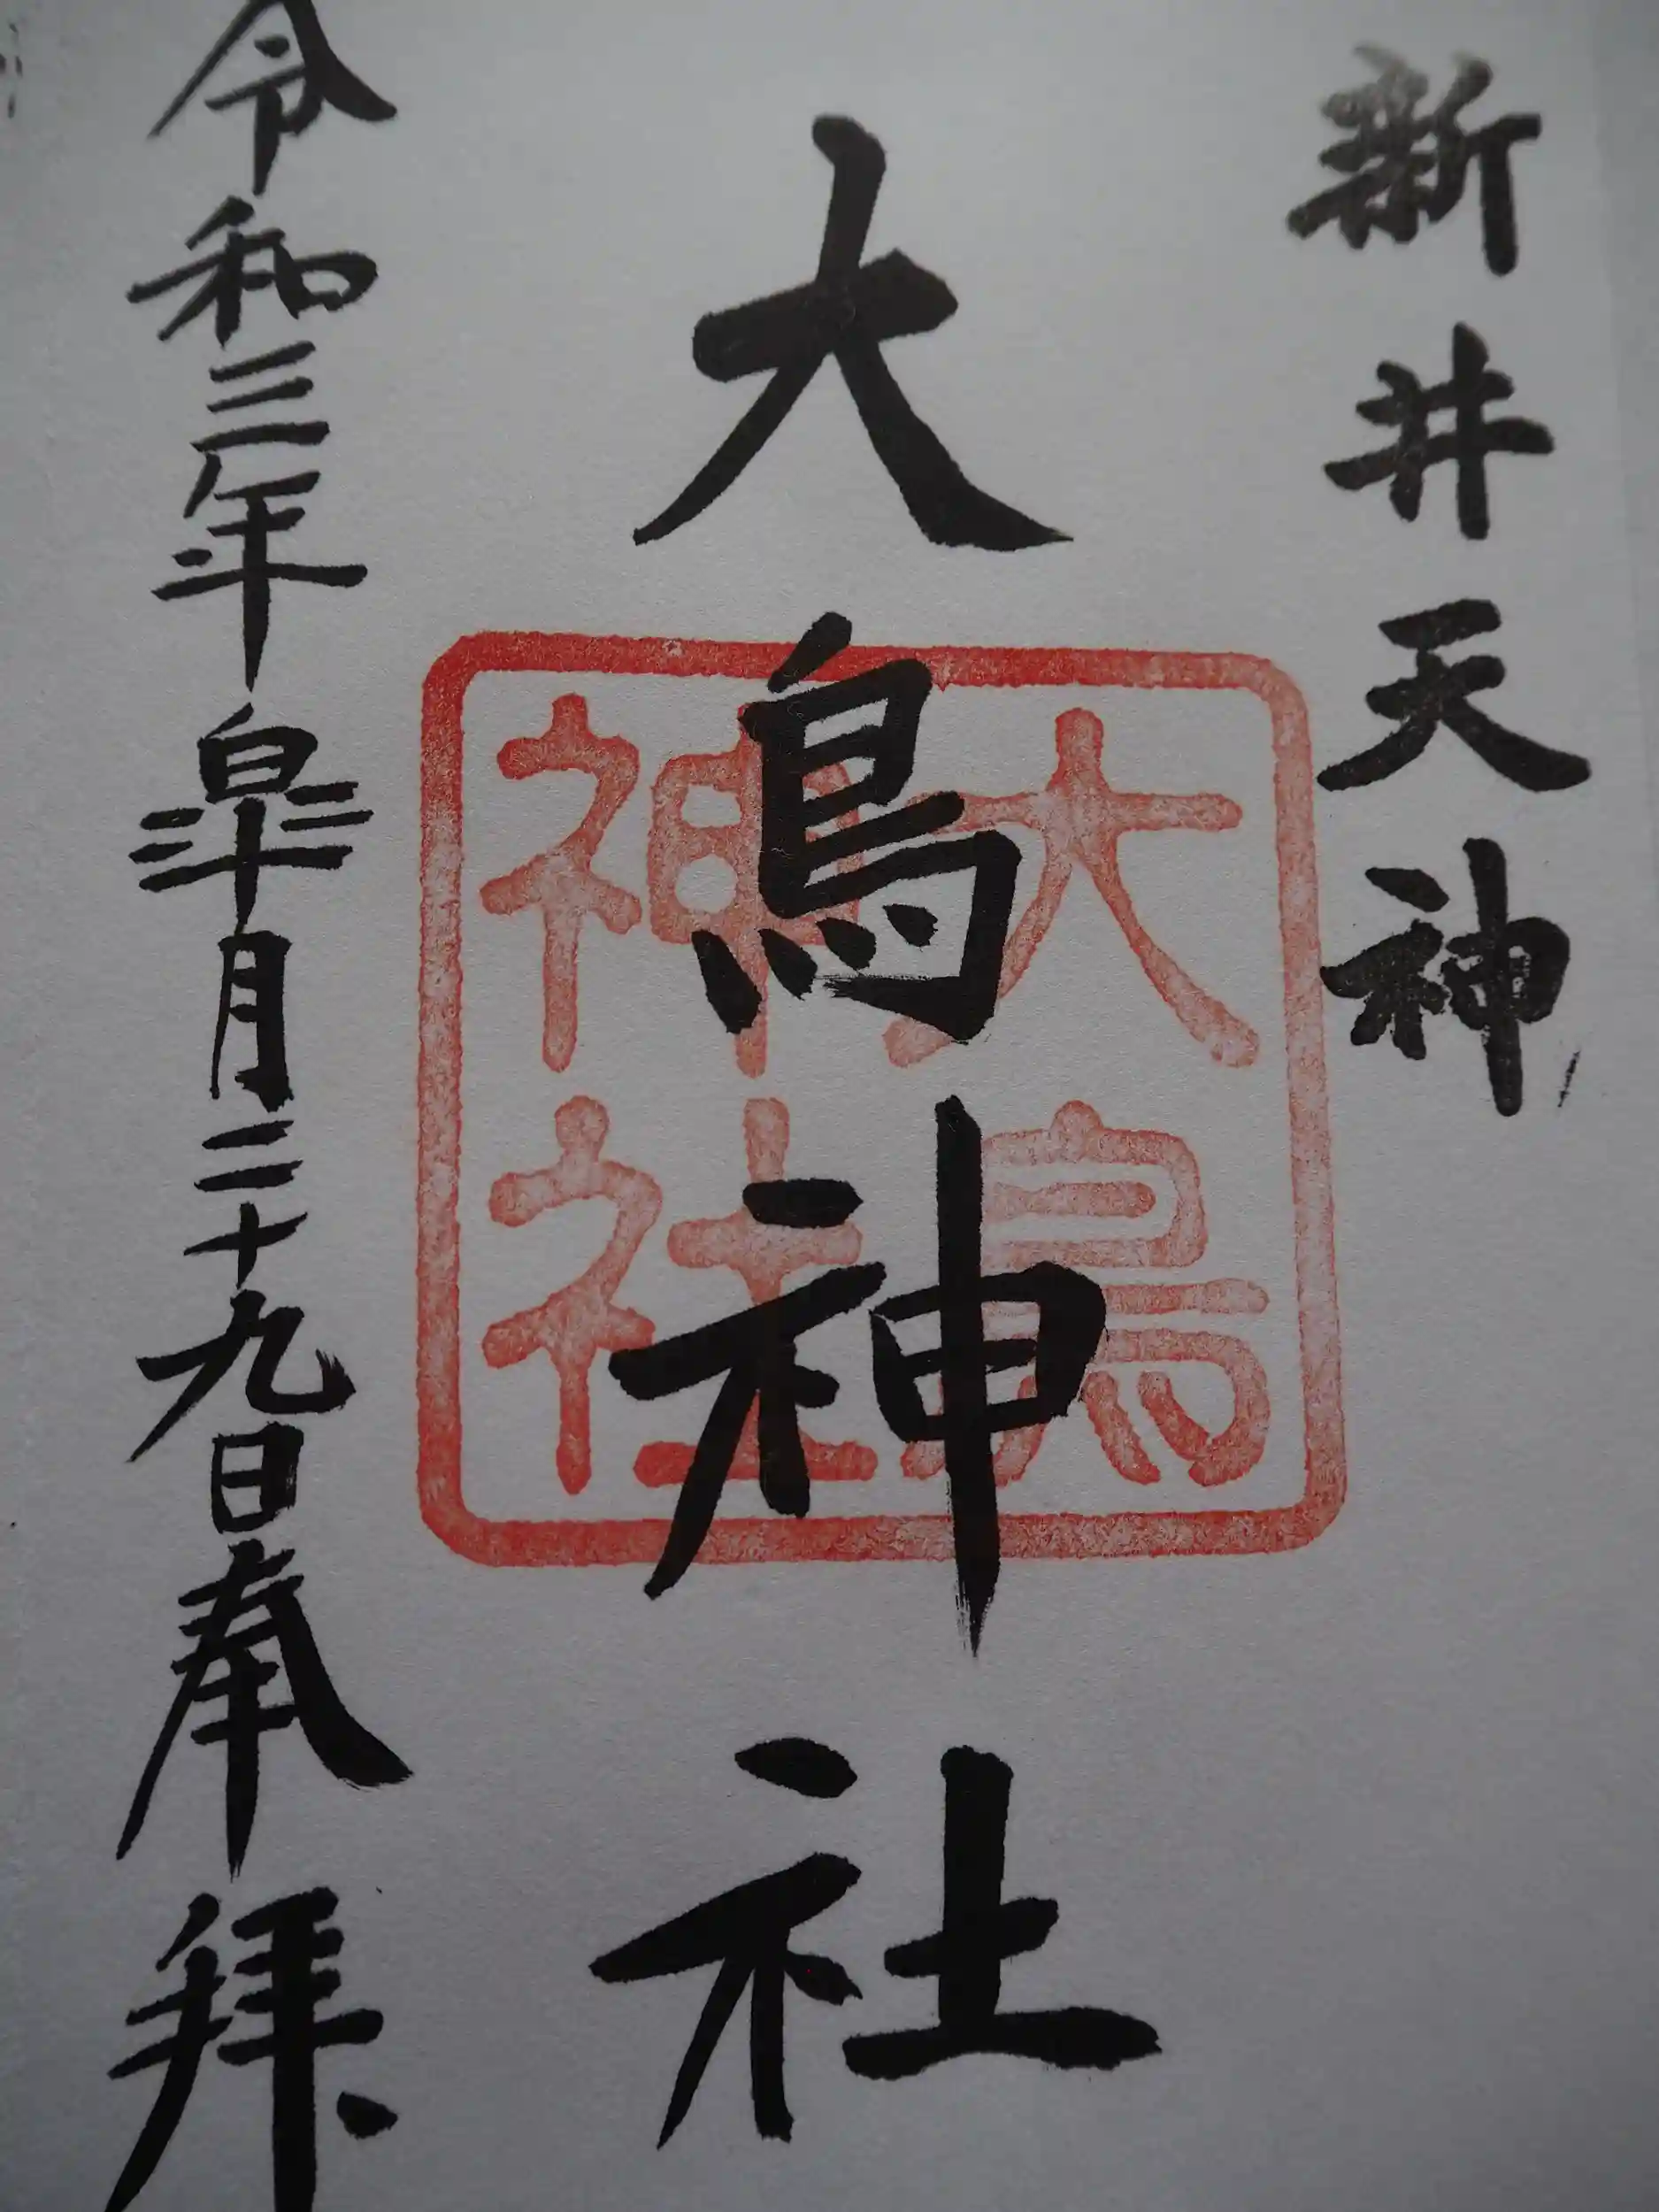 新井天神
大鳥神社
大鳥神社
令和三年皐月二十九日奉拝